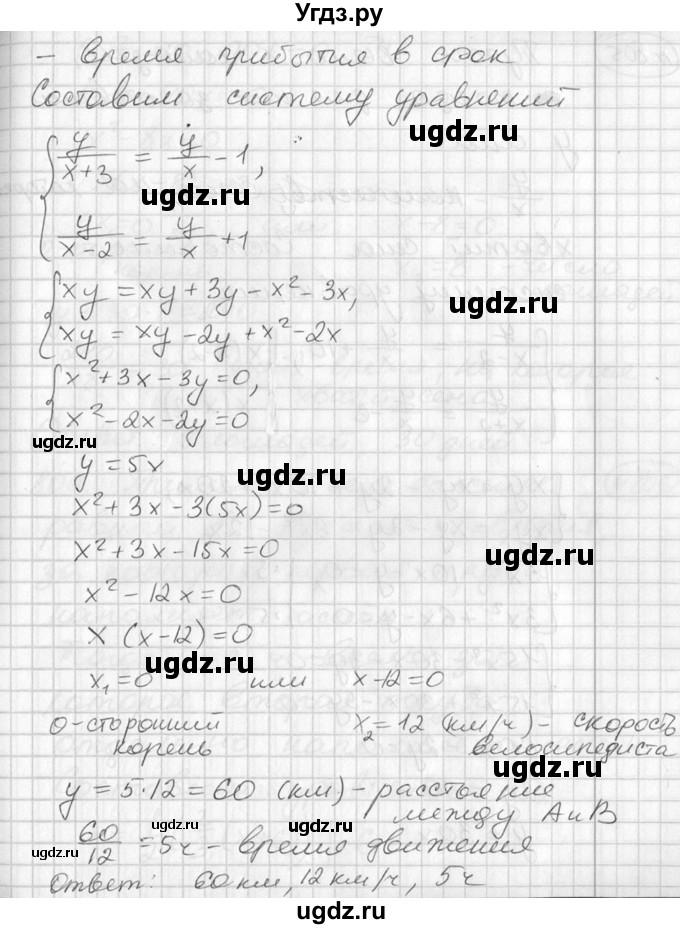 Угдз.ру
– время прибытия в срок
Составим систему уравнений
ugdz.ru
{ y/(x+3) = y/x - 1,
ugdz.ru
y/(x-2) = y/x + 1
{ xy = xy + 3y - x² - 3x,
ugdz.ru
xy = xy - 2y + x² - 2x
{ x² + 3x - 3y = 0,
x² - 2x - 2y = 0
ugdz.ru
y = 5x
ugdz.ru
x² + 3x - 3(5x) = 0
x² + 3x - 15x = 0
ugdz.ru
x² - 12x = 0
x (x-12) = 0
ugdz.ru
x₁ = 0 или x-12 = 0
0-сторонний корень
x₂ = 12 (км/ч) – скорость велосипедиста
ugdz.ru
y = 5·12 = 60 (км) – расстояние
между A и B
ugdz.ru
ugdz.ru
60/12 = 5ч – время движения
ugdz.ru
Ответ: 60 км, 12 км/ч, 5ч
ugdz.ru